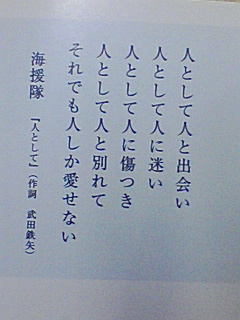 人として人と出会い
人として人に迷い
人として人に傷つき
人として人と別れて
それでも人しか愛せない
海援隊 『人として』(作詞 武田鉄矢)